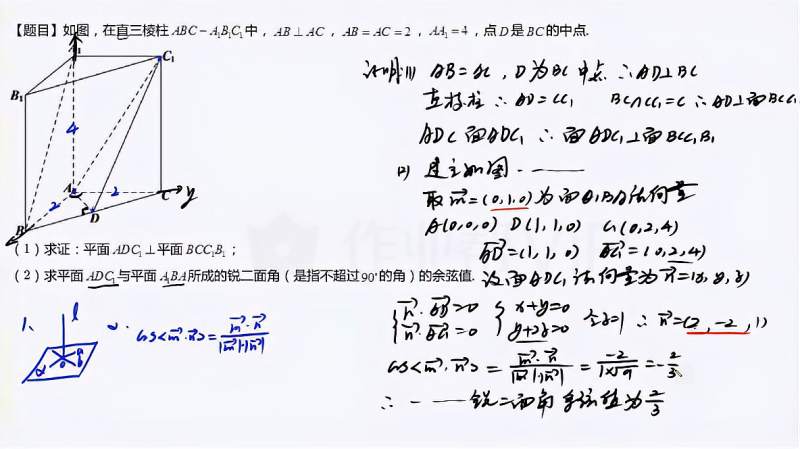 【题目】如图，在直三棱柱ABC-A₁B₁C₁中，AB⊥AC，AB=AC=2，AA₁=4，点D是BC的中点.
C₁
B₁
4
A
2
2
C
y
B
D
(1)求证：平面ADC₁⊥平面BCC₁B₁；
(2)求平面ADC₁与平面A₁BA所成的锐二面角（是指不超过90°的角）的余弦值.
1、
l
α
a
b
2.
cos<m⃗·n⃗>=m⃗·n⃗/|m⃗|·|n⃗|
证明(1) AB=AC，D为BC中点 ∴AD⊥BC
直棱柱 ∴AD⊥CC₁ BC∩CC₁=C ∴AD⊥面BCC₁
AD⊂面ADC₁ ∴面ADC₁⊥面BCC₁B₁
(2) 建立如图·——
取m⃗=(0,1,0)为面A₁BA法向量
A(0,0,0) D(1,1,0) C₁(0,2,4)
AD⃗=(1,1,0) AC₁⃗=(0,2,4)
设面ADC₁法向量为n⃗=(x,y,z)
{n⃗·AD⃗=0 n⃗·AC₁⃗=0 {x+y=0 y+2z=0 令z=1 ∴n⃗=(2,-2,1)
cos<m⃗·n⃗>=m⃗·n⃗/|m⃗|·|n⃗|=-2/1×√9=-2/3
∴ —— 锐二面角余弦值为2/3